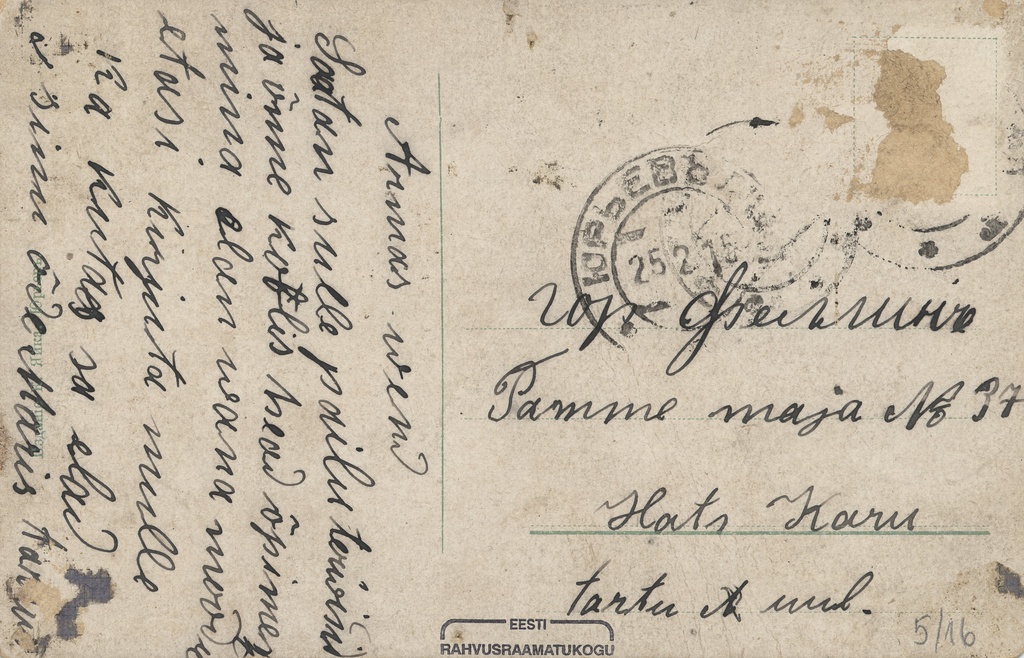 Armas wend
Saadan sulle palju terwisi
ja õnne kotlis head õpimest
mina elan wana moodu
etasi kirjuta mulle
ka kudas sa elad
sinu õde Maris Karu.
ЮРЬЕВЪ
25 2 16
гор Феллинъ
Pamme maja № 37
Hats Karu
tartu
5/16
EESTI
RAHVUSRAAMATUKOGU